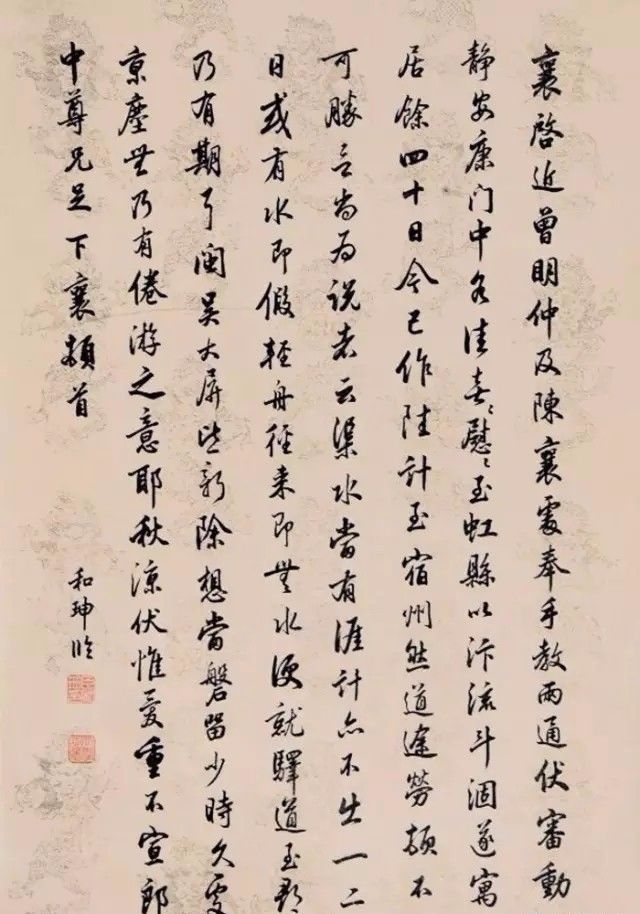 襄啓近曾明仲及陳襄處奉手教兩通伏審動
靜安康门中各佳喜〻慰〻至虹縣以汴流斗涸遂寓
居餘四十日今已作陸計至宿州然道途勞頓不
可勝言尚為說者云渠水當有涯計亦不出一二
日或有水即假輕舟徑來即無水便就驛道至都
乃有期耳閩吳大屏皆新除想當磐留少時久處
京塵無乃有倦游之意耶秋涼伏惟愛重不宣郎
中尊兄足下襄頓首
和珅臨